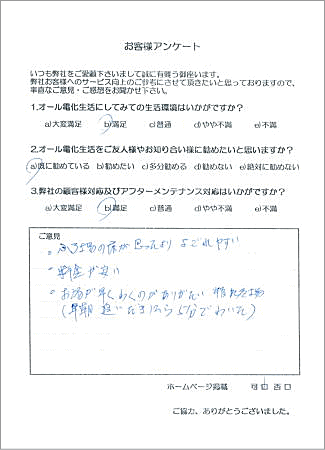 お客様アンケート
いつも弊社をご愛顧下さいまして誠に有難う御座います。
弊社お客様へのサービス向上のご参考にさせて頂きたいと思っておりますので、
率直なご意見・ご感想をお聞かせ下さい。
1.オール電化生活にしてみての生活環境はいかがですか?
a)大変満足 b)満足 c)普通 d)やや不満 e)不満
2.オール電化生活をご友人様やお知り合い様に勧めたいと思いますか?
a)既に勧めている b)勧めたい c)多分勧める d)勧めない e)絶対に勧めない
3.弊社の顧客様対応及びアフターメンテナンス対応はいかがですか?
a)大変満足 b)満足 c)普通 d)やや不満 e)不満
ご意見
の床が思ったよりよごれやすい
が安い
お湯が早くわくのがありがたい
ホームページ掲載 可 否
ご協力、ありがとうございました。